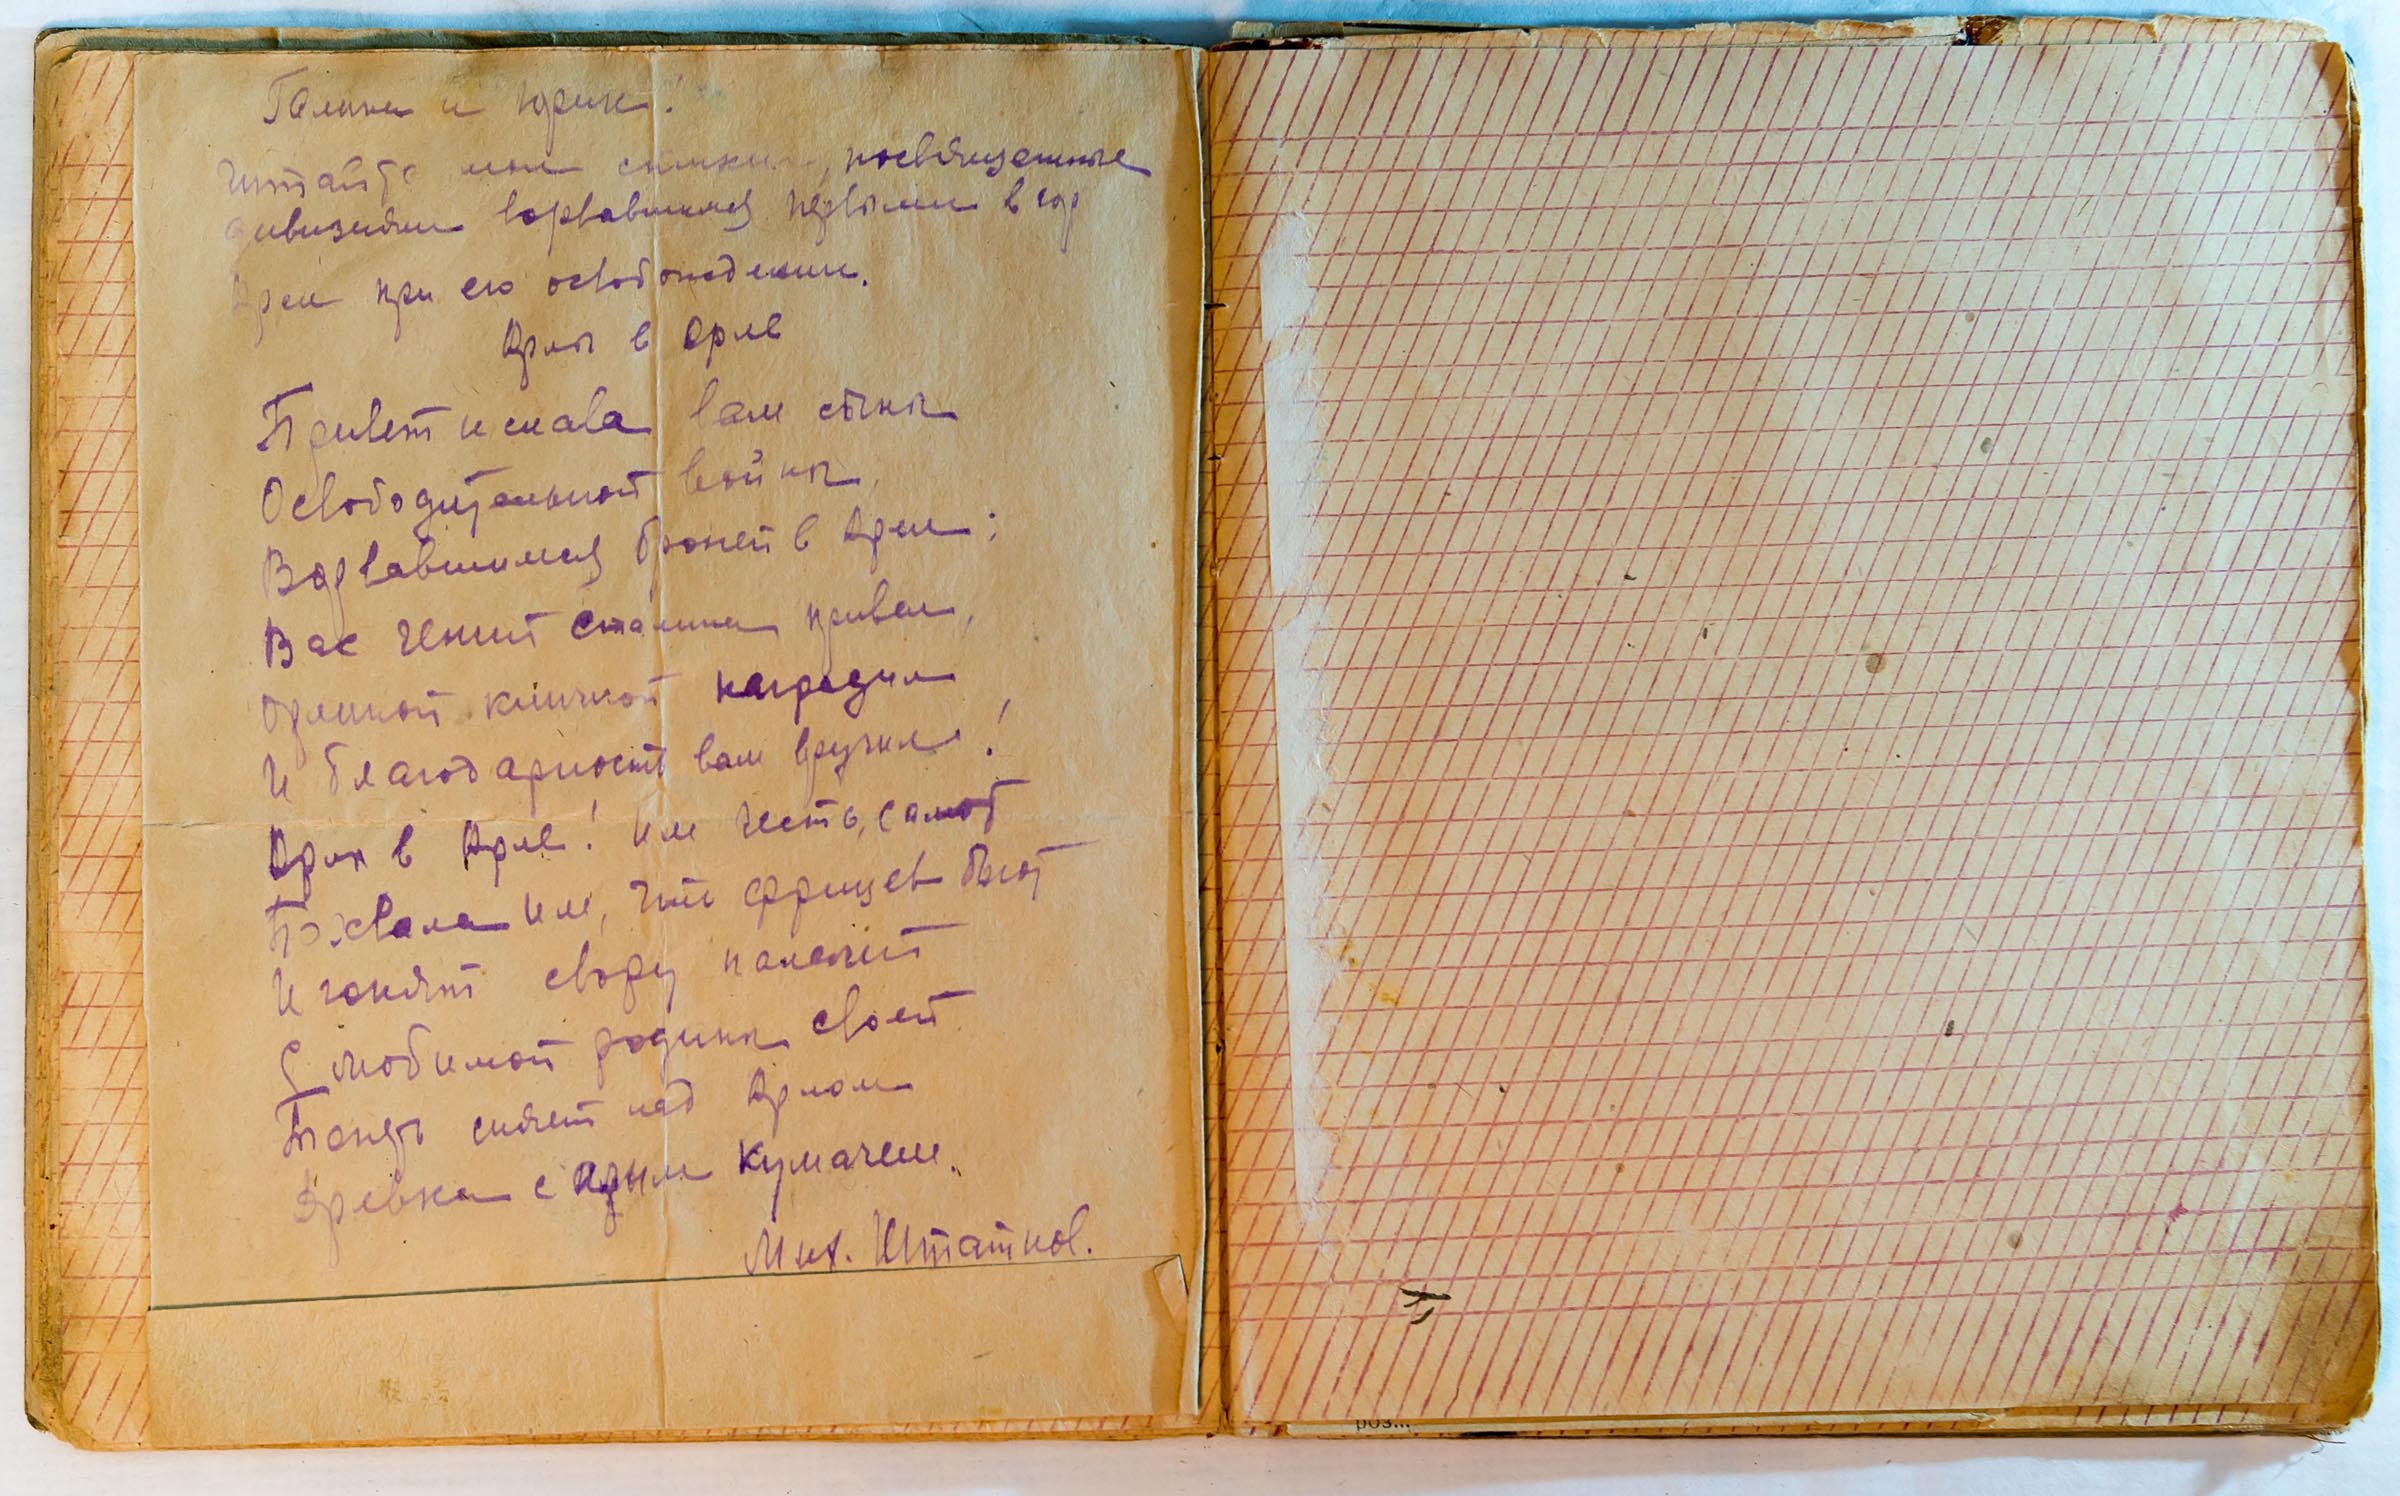 Галина и Юрик!
Читайте мои стишки, посвященные
дивизиям ворвавшимся первыми в гор
Орел при его освобождении.
Орлы в Орле
Привет и слава вам сыны
Освободительной войны,
Ворвавшимся броней в Орел;
Вас гений Сталина привел,
Орлиной кличкой наградил
И благодарность вам вручил!
Орлы в Орле! Им честь, салют
Похвала им, что фрицев бьют
И гонят свору палачей
С любимой родины своей.
Теперь сияет над Орлом
Древко с алым кумачем.
Мих. Штатнов.
роз...